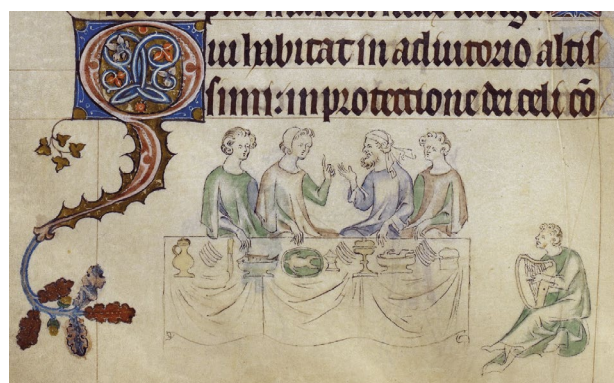 Qui habitat in adiutorio altis
simi: in protectione dei celi cō